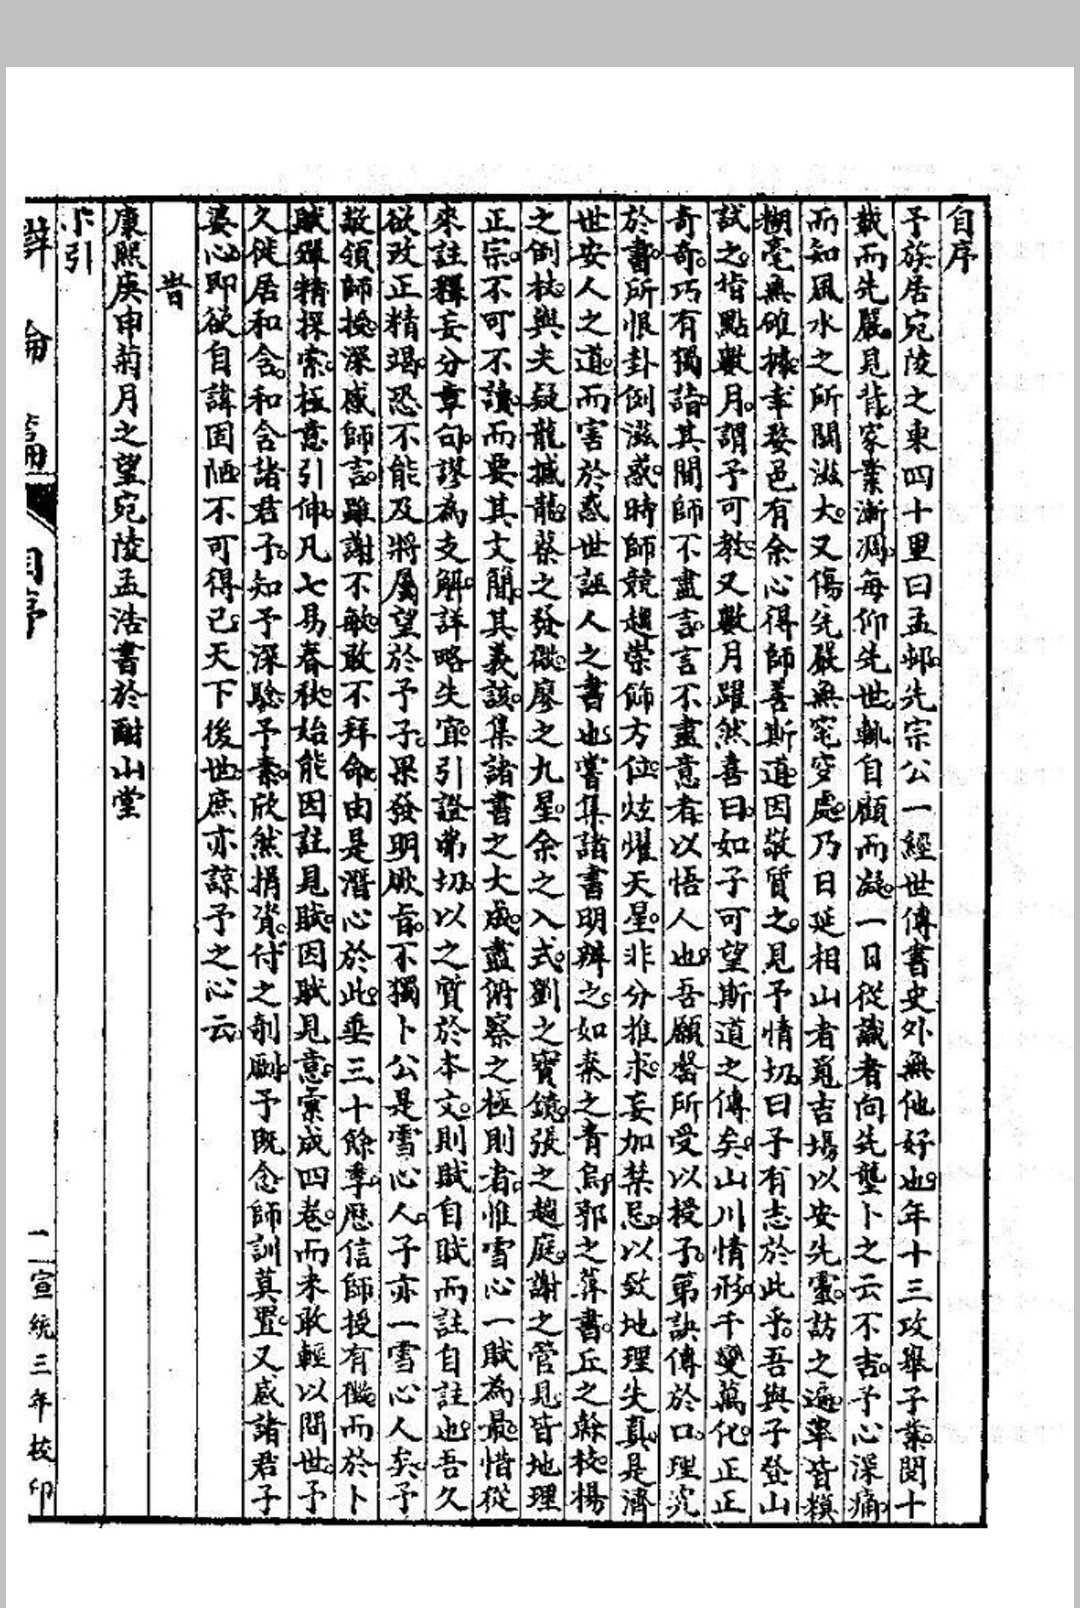 自序
予族居宛陵之東四十里曰孟邨。先宗公一經世傳書史外無他好也。年十三攻舉子業。閱十
載而先嚴見背。家業漸凋。每仰先世。孰自顧而凝。一日從識者向先壟卜之云不吉。予心深痛。
而知風水之所關滋大。又傷先嚴無窀穸處。乃日延相山者覓吉場以安先靈。訪之遍。率皆模
糊毫無確據。幸婺邑有余心得師善斯道。因敬質之。見予情切。曰子有志於此乎。吾與子登山
試之。指點數月。謂予可教。又數月躍然喜曰。如子可望斯道之傳矣。山川情形。千變萬化。正正
奇奇。巧有獨詣。其間師不盡言。言不盡意。存以悟人也。吾願罄所受以授子。第訣傳於口。理究
於書。所恨卦例滋惑。時師競趨。崇飾方位。炫耀天星。非分推求。妄加禁忌。以致地理失真。是濟
世安人之道。而害於惑世誣人之書也。嘗集諸書明辨之。如秦之青烏。郭之葬書。丘之斡枝。楊
之倒杖。與夫疑龍撼龍。蔡之發微。廖之九星。余之入式。劉之寶鏡。張之趨庭。謝之管見。皆地理
正宗。不可不讀。而要其文簡。其義該。集諸書之大成。盡俯察之極則者。惟雪心一賦為最。惜從
來註釋妄分章句。謬為支解。詳略失宜。引證弗切。以之質於本文。則賦自賦而註自註也。吾久
欲改正精竭。恐不能及。將屬望於予。子果發明厥旨。不獨卜公是雪心人。子亦一雪心人矣。予
敬領師授。深感師言。雖謝不敏。敢不拜命。由是潛心於此。垂三十餘季。歷信師授有徵。而於卜
賦殫精探索。極意引伸。凡七易春秋。始能因註見賦。因賦見意。彙成四卷。而未敢輕以問世。予
久徙居和含。和含諸君子。知予深騐予素。欣然捐資。付之剞劂。予既念師訓莫置。又感諸君子
婆心。即欲自諱固陋不可得已。天下後世。庶亦諒予之心云。
旹
康熙庚申菊月之望宛陵孟浩書於酣山堂
小引
辯論篇
自序
二
宣統三年校印